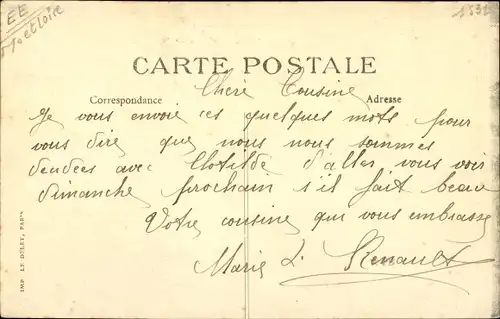 EE
et Loire
CARTE POSTALE
Chère Cousine
Correspondance
Adresse
Je vous envoie ces quelques mots pour
vous dire que nous nous sommes
décidées avec Clotilde d'aller vous voir
dimanche prochain s'il fait beau
Votre cousine qui vous embrasse
Marie L. Renault
IMP. LE DELEY, PARIS